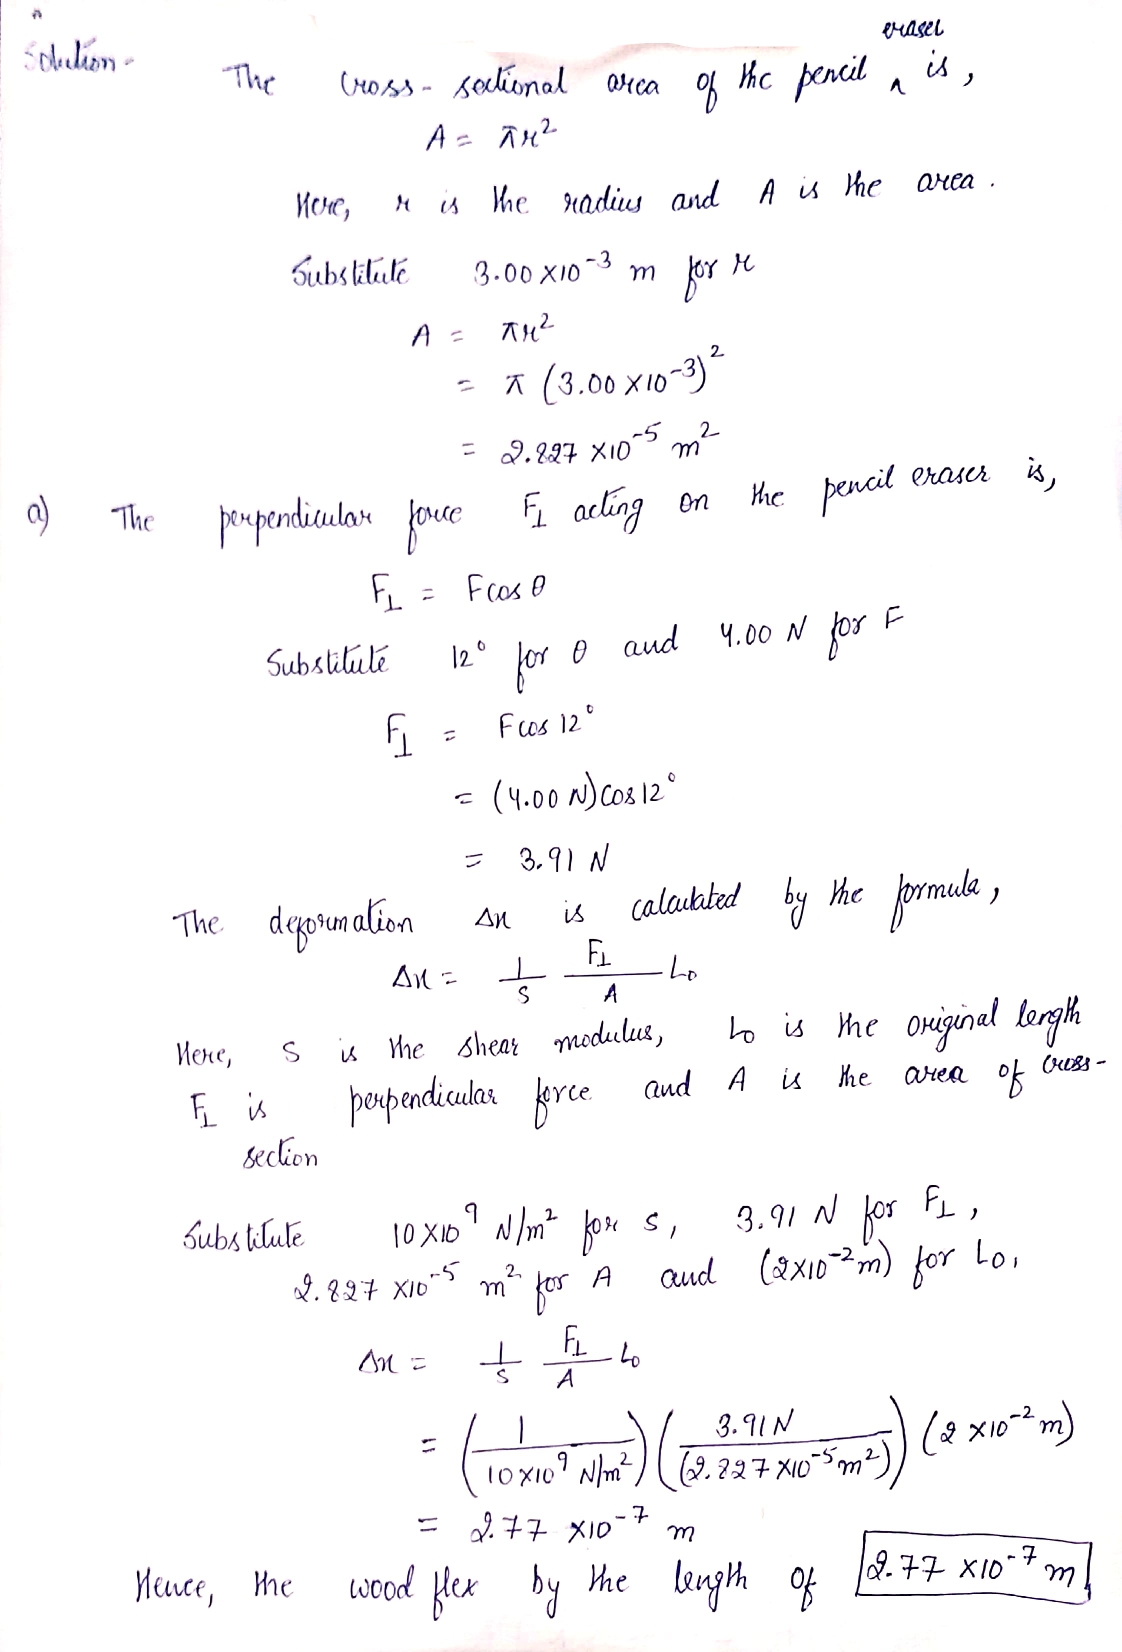 eraser
Solution - The cross-sectional area of the pencil ^ is,
A = πr²
Here, r is the radius and A is the area.
Substitute 3.00 X10⁻³ m for r
A = πr²
= π (3.00 X10⁻³)²
= 2.827 X10⁻⁵ m²
a) The perpendicular force F⊥ acting on the pencil eraser is,
F⊥ = Fcos θ
Substitute 12° for θ and 4.00 N for F
F⊥ = Fcos 12°
= (4.00 N)cos 12°
= 3.91 N
The deformation Δx is calculated by the formula,
Δx = 1/S F⊥/A L₀
Here, S is the shear modulus, L₀ is the original length
F⊥ is perpendicular force and A is the area of cross-
section
Substitute 10 X10⁹ N/m² for S, 3.91 N for F⊥,
2.827 X10⁻⁵ m² for A and (2X10⁻²m) for L₀,
Δx = 1/S F⊥/A L₀
= (1/10X10⁹ N/m²) (3.91N/(2.827 X10⁻⁵m²)) (2 X10⁻²m)
= 2.77 X10⁻⁷ m
Hence, the wood flex by the length of 2.77 X10⁻⁷ m